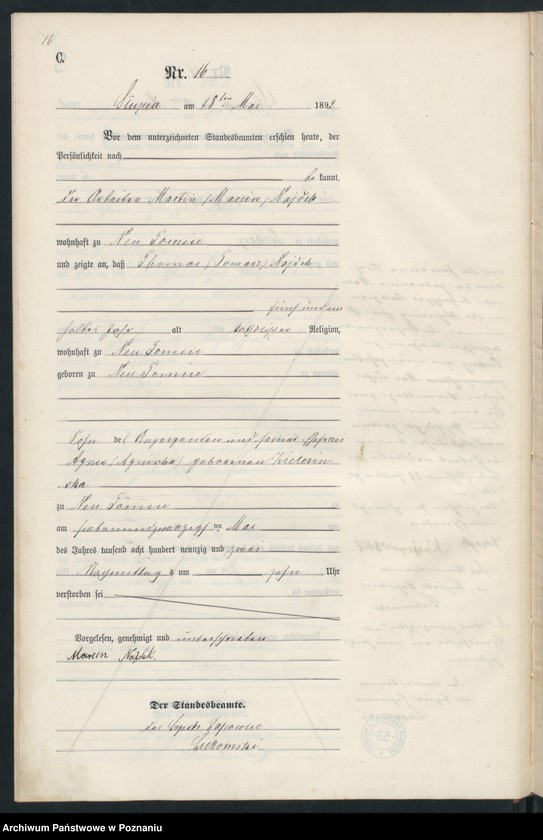 16
C.
Nr. 16
am 28ten Mai 1892
Vor dem unterzeichneten Standesbeamten erschien heute, der
Persönlichkeit nach
be kannt,
der Arbeiter Martin (Marcin)
wohnhaft zu Neu Tomice
und zeigte an, daß Thomas (Tomasz)
halbes Jahr alt katholischer Religion,
wohnhaft zu Neu Tomice
geboren zu Neu Tomice
Sohn des Anzeigenden und seiner Ehefrau
Agnes (Agnieszka) geborenen
zu Neu Tomice
am siebenundzwanzigsten Mai
des Jahres tausend acht hundert neunzig und zwei
Nachmittag s um zehn Uhr
verstorben sei
Vorgelesen, genehmigt und unterschrieben
Marcin
Der Standesbeamte.
Archiwum Państwowe w Poznaniu